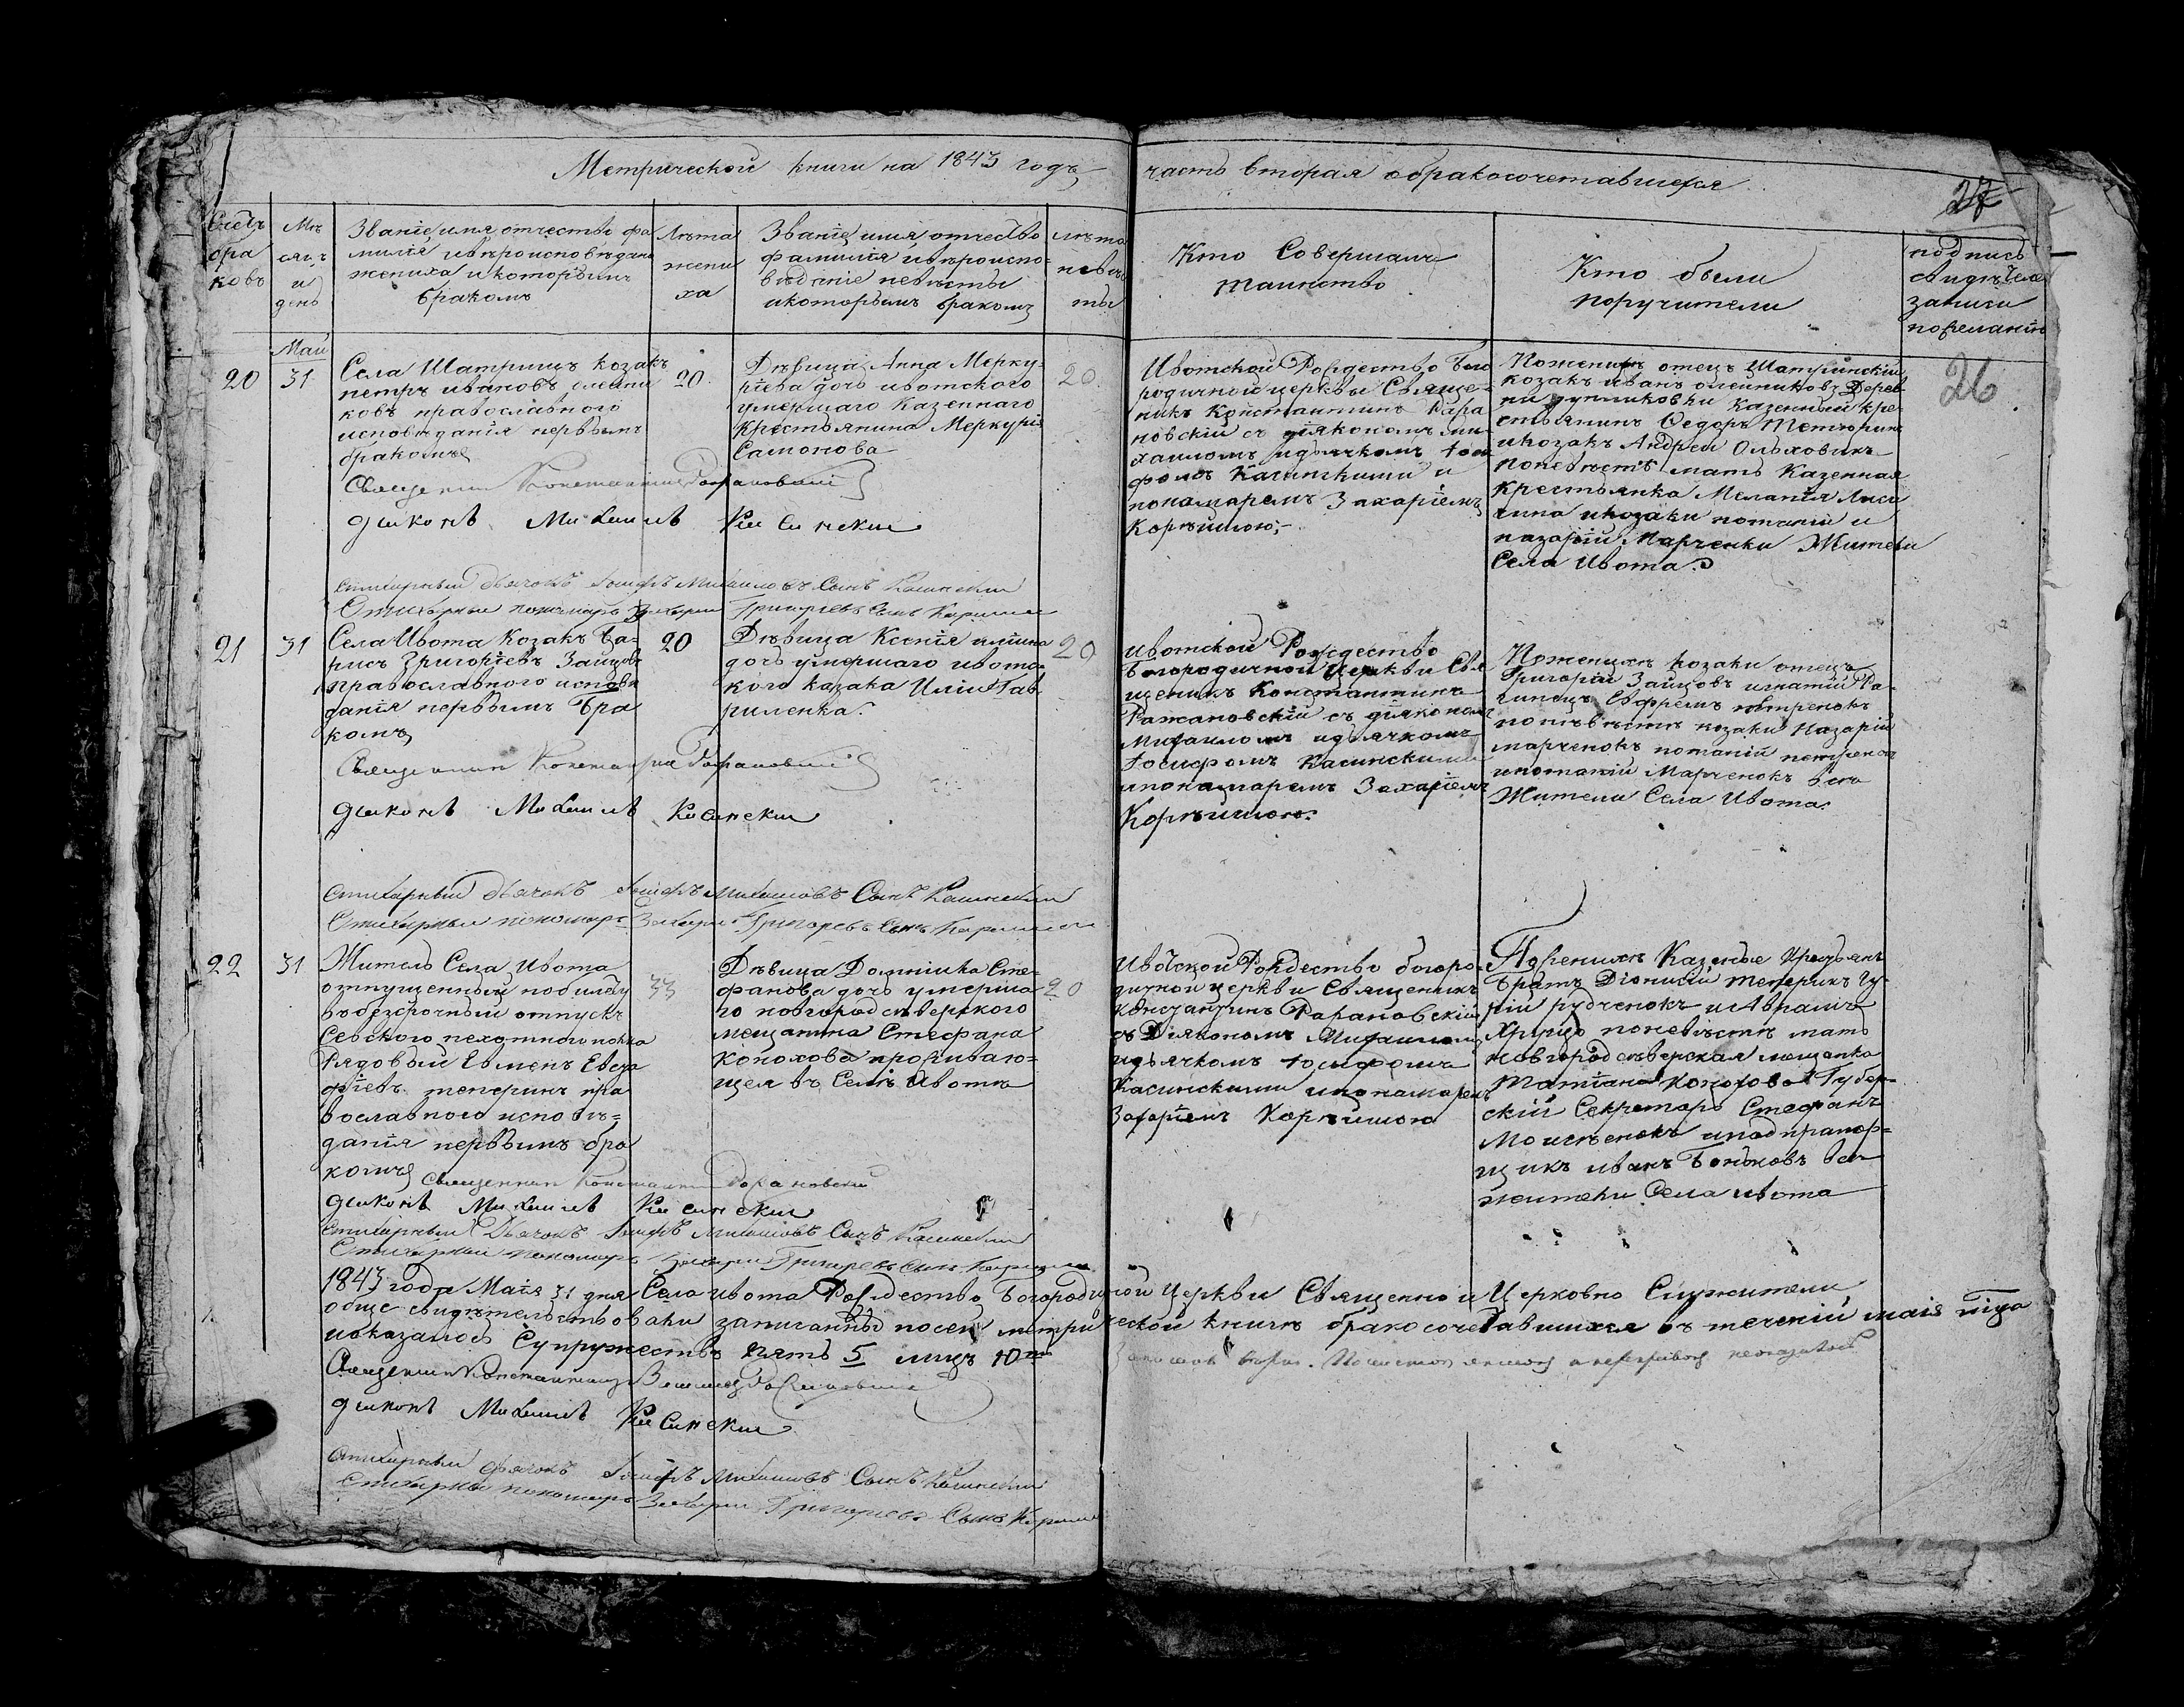 Метрической книги на 1843 годъ
часть вторая о бракосочетавшихся
27
Счетъ бра ковъ
Мѣ сяцъ и день
Званіе имя отчество фа
милія и вѣроисповѣданіе
жениха и которымъ
бракомъ
Лѣта
жени
ха
Званіе имя отчество
фамилія и вѣроиспо-
вѣданіе невѣсты
и которымъ бракомъ
лѣта
невѣ
сты
Кто Совершалъ
таинство
Кто были
поручители
подпись
свидѣтелей
записи
по желанію
Май
20
31
Села Шатрищъ козакъ
петръ ивановъ олейни
ковъ православного
исповѣданія первымъ
бракомъ
20
Дѣвица Анна Мерку-
ріева дочь ивотского
умершаго Казенного
Крестьянина Меркурія
Самонова
20
Ивотской Рождество Бого
родичной церкви Священ-
никъ Константинъ Рара
новскій съ діякономъ ми-
хаиломъ и дьячкомъ Іоси
фомъ Касинскими и
пономаремъ Захаріемъ
Корѣйшою,-
По женихѣ отецъ Шатрійскій
козакъ иванъ олейниковъ Дерев
ни Казенный кре-
стьянинъ Ѳедоръ Тетюринъ
и козакъ Андрей Ольховикъ
по невѣстѣ мать Казенная
Крестьянка Меланія
и козаки потапій и
назарій Марченки Жители
Села Ивота.
26
Священникъ Константинъ Рарановскій
дияконъ Михаилъ Касински
стихарный дьячокъ Іосифъ Михаиловъ Сынъ Касинскій
Стихарный пономарь Захарій Григорьевъ Сынъ
21
31
Села Ивота Козакъ Ба-
рисъ Григоріевъ Зайцовъ
православного исповѣ
данія первымъ бра
комъ
20
Дѣвица Ксенія иліина
дочь умершаго ивотс
кого казака Иліи Гав
риленка.
20
ивотской Рождество
Богородичной Церкви Свя
щеникъ Константинъ
Рарановскій съ діякономъ
Михаиломъ и дьячкомъ
Іосифомъ Касинскими
и пономаремъ Захаріемъ
Корѣйшою.
По женихѣ козаки отецъ
Григорій Зайцовъ игнатій
Ефремъ петренокъ
по невѣстѣ козаки Назарій
марченокъ потапій петренокъ
и потапій Марченокъ всѣ
Жители Села Ивота.
Священникъ Константинъ Рарановскій
дияконъ Михаилъ Касински
стихарный дьячокъ Іосифъ Михаиловъ Сынъ Касинскій
Стихарный пономарь Захарій Григорьевъ Сынъ
22
31
Житель Села Ивота
отпущенный по билету
въ безсрочный отпускъ
Севского пехотного полка
Рядовый Евменъ Евста
фіевъ теперикъ пра
вославного исповѣ=
данія первымъ бра
комъ
33
Дѣвица Домникія Сте-
фанова дочь умерша
го новгородсѣверского
мещанина Стефана
Конохова проживаю=
щея въ Селѣ Ивотѣ
20
Ивотской Рождество богоро-
дичной церкви Священикъ
Константинъ Рарановскій
съ Діякономъ Михаиломъ
и дьячкомъ Іосифомъ
Касинскими и пономаремъ
Захаріемъ Корѣйшою
По женихѣ Казеные Крестьяне
Братъ Діонисій теперикъ Гу-
рій рудченокъ и Авраамъ
по невѣстѣ мать
новгородсѣверская мещанка
Татіана Конохова Губер-
скій Секретарь Стефанъ
Моисѣенокъ и подпрапор=
щикъ иванъ всѣ
жители Села ивота
Священникъ Константинъ Рарановскій
дияконъ Михаилъ Касински
стихарный Дьячокъ Іосифъ Михаиловъ Сынъ Касинскій
Стихарный пономарь Захарій Григорьевъ Сынъ
1843 года Маія 31 дня Села ивота Рождество Богородичной Церкви Священно и Церковно Служители
обще свидѣтельствовали записанныхъ по сей метрической книгѣ бракосочетавшихся въ теченіи маія
и оказалось Супружествъ пять 5 лицъ 10
Священникъ Константинъ Рарановскій
дияконъ Михаилъ Касински
стихарный дьячокъ Іосифъ Михаиловъ Сынъ Касинскій
Стихарный пономарь Захарій Григорьевъ Сынъ